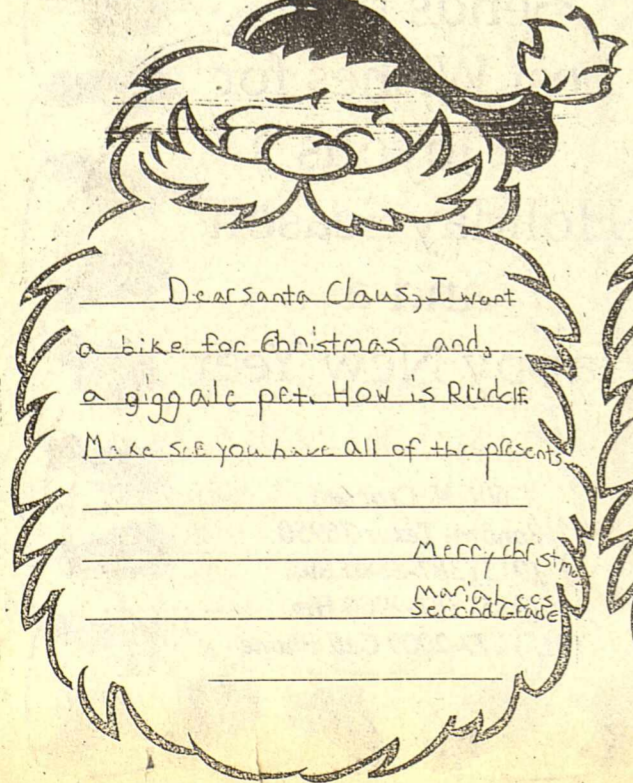 Dear santa Claus, I want
a bike for Christmas and,
a giggale pet. How is RUdolF
Make sure you have all of the presents
Merry christmas
Maria
Second Grade